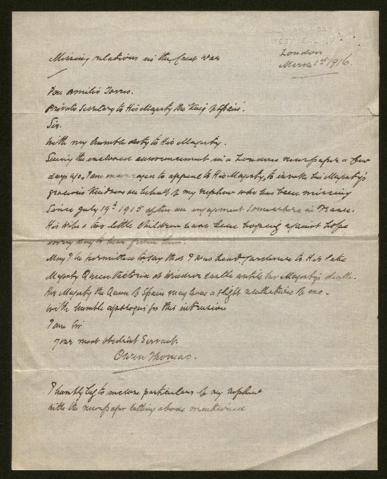 London
March 1st 1916.
Missing relations in the Great War
Don Emilio Torres.
Private Secretary to His Majesty the King of Spain.
Sir.
With my humble duty to His Majesty.
Seeing the enclosed announcement in a London newspaper a few
days ago, I am to appeal to His Majesty, to invoke his Majesty's
gracious kindness on behalf of my nephew who has been missing
since July 19th 1915 after an engagement somewhere in France.
His wife & two little children have been hoping against hope
every day to hear from him.
May I be permitted to say that I was head gardener to Her late
Majesty Queen Victoria at Windsor Castle until her Majesty's death.
Her Majesty the Queen of Spain may have a slight recollection of me.
With humble apologies for this intrusion
I am Sir
your most obedient Servant.
Owen Thomas.
I humbly beg to enclose particulars of my nephew
with the newspaper cutting above mentioned